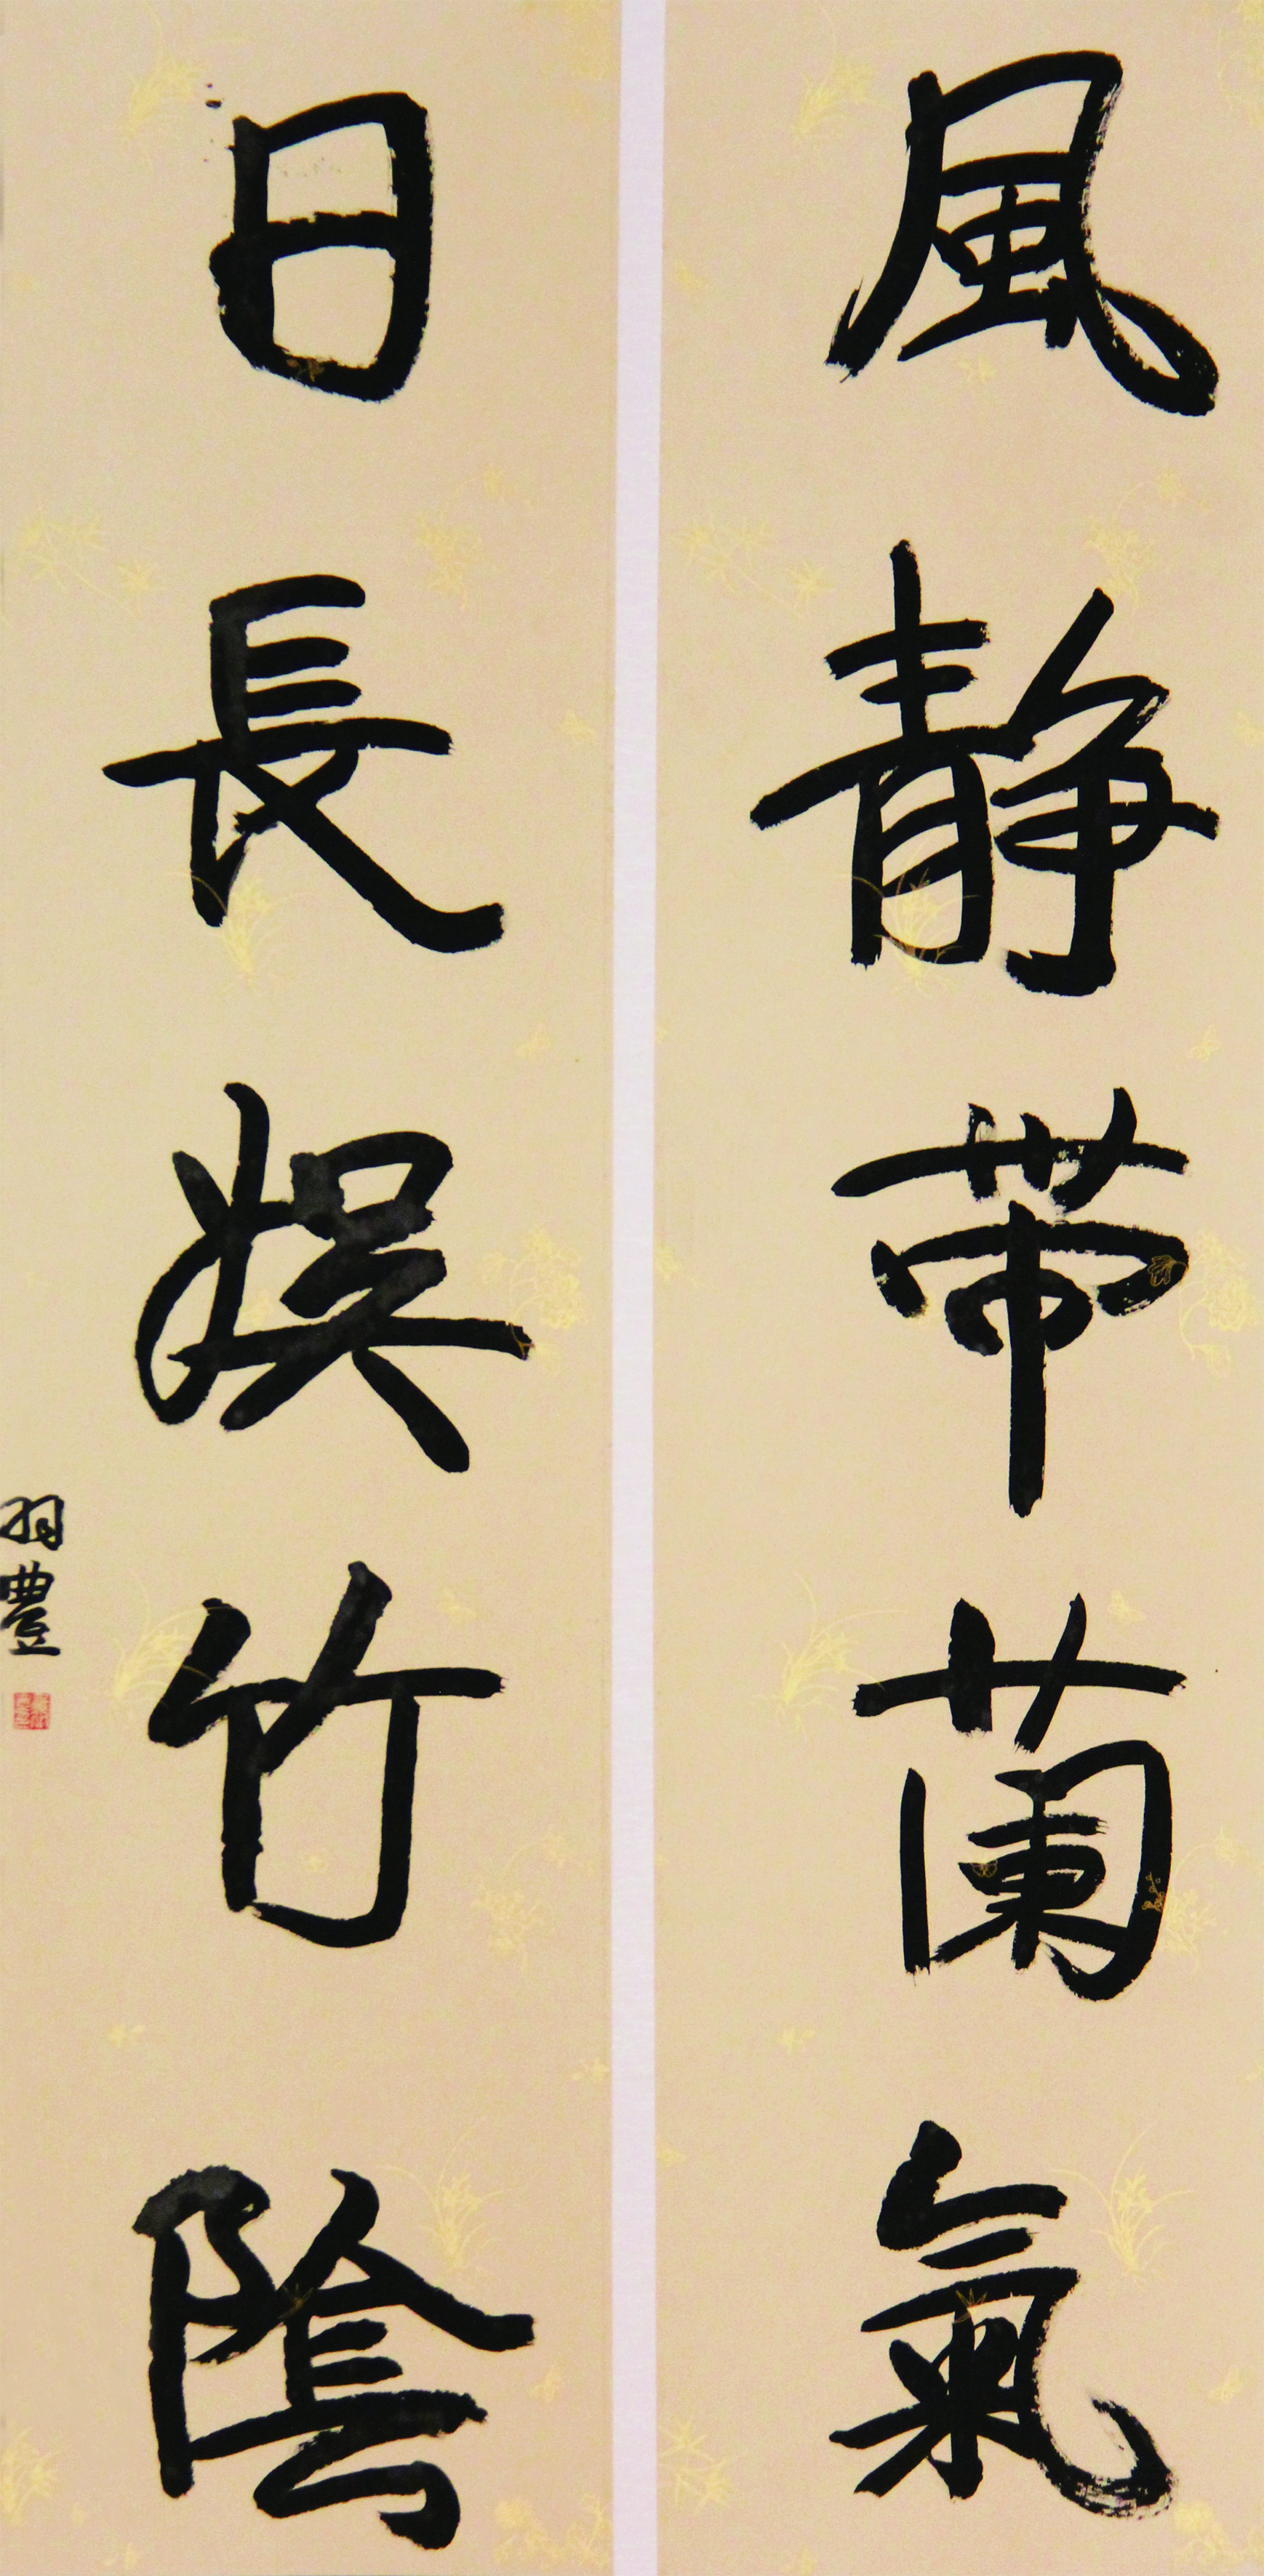 風靜帶蘭氣
日長娛竹陰
羽豐